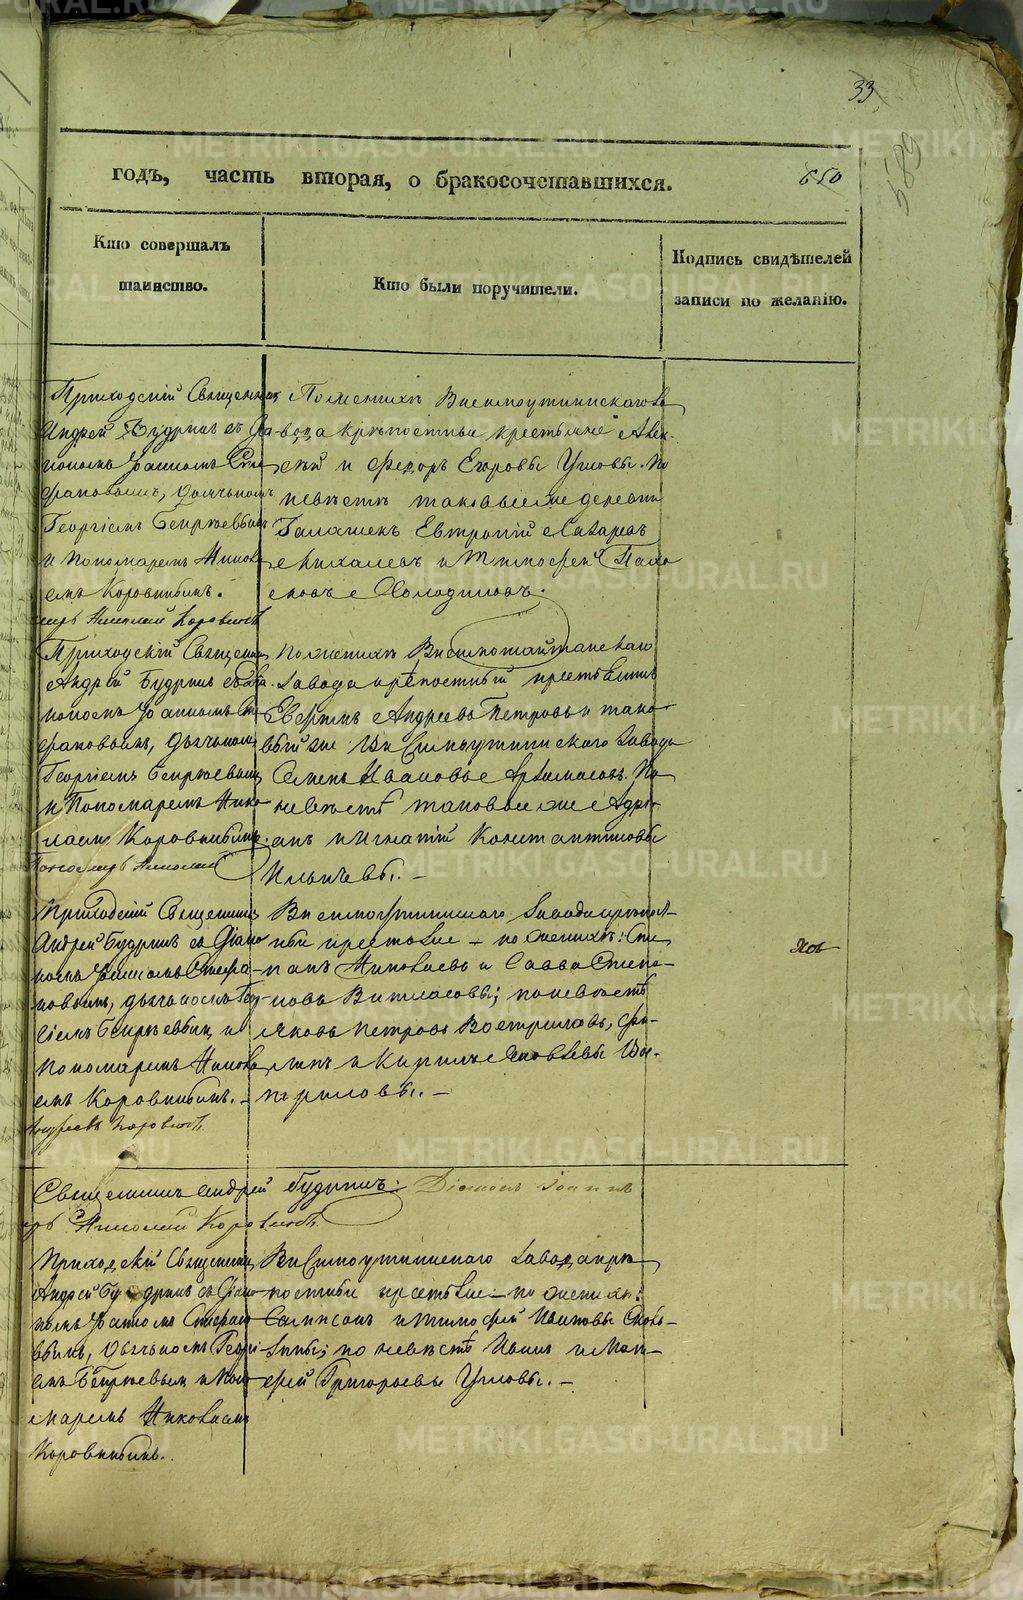 33
годъ, часть вторая, о бракосочетавшихся.
650
589
Кто совершалъ
таинство.
Кто были поручители.
Подпись свидѣтелей
записи по желанію.
Приходскій Священникъ
Андрей Будринъ съ Діа-
кономъ Іоанномъ Сте-
фановымъ, дьячкомъ
Георгіемъ
и Пономаремъ Никола-
емъ Коровинымъ.
Николай Коровинъ
По женихѣ Висимоуткинскаго За-
вода крѣпостные крестьяне Алек-
сѣй и Федоръ Егоровы Угловы. По
невѣстѣ таковые же деревни
Галашекъ Евтропій Захаровъ
Михалевъ и Тимофей
Холодиловъ.
Приходскій Священникъ
Андрей Будринъ съ Діа-
кономъ Іоанномъ Сте-
фановымъ, дьячкомъ
Георгіемъ
и Пономаремъ Нико-
лаемъ Коровинымъ.
Пономарь Николай
По женихѣ Висимошайтанскаго
Завода крѣпостный крестьянинъ
Андреевъ Петровъ и тако-
вый же Висимоуткинскаго Завода
Семенъ Ивановъ. По
невѣстѣ таковые же Адрі-
анъ и Игнатій Константиновы
Ильичевы. —
Приходскій Священникъ
Андрей Будринъ съ Діако-
номъ Іоанномъ Стефа-
новымъ, дьячкомъ Геор-
гіемъ и
Пономаремъ Никола-
емъ Коровинымъ. —
Коровинъ
Висимоуткинскаго Завода крѣпост-
ные крестьяне — по женихѣ: Сте-
панъ Николаевъ и Савва Степа-
новъ; по невѣстѣ
Яковъ Петровъ Востриловъ, Фи-
липъ и Кирилъ Яковлевы Вос-
триловы. —
Священникъ Андрей Будринъ: Діаконъ Іоаннъ
Николай Коровинъ
Приходскій Священникъ
Андрей Будринъ съ Діако-
номъ Іоанномъ Стефано-
вымъ, дьячкомъ Георгі-
емъ и Поно-
маремъ Николаемъ
Коровинымъ.
Висимоуткинскаго Завода крѣ-
постные крестьяне — по женихѣ:
Сампсонъ и Тимофей Ивановы
по невѣстѣ Иванъ и
Григорьевы Угловы. —
METRIKI.GASO-URAL.RU